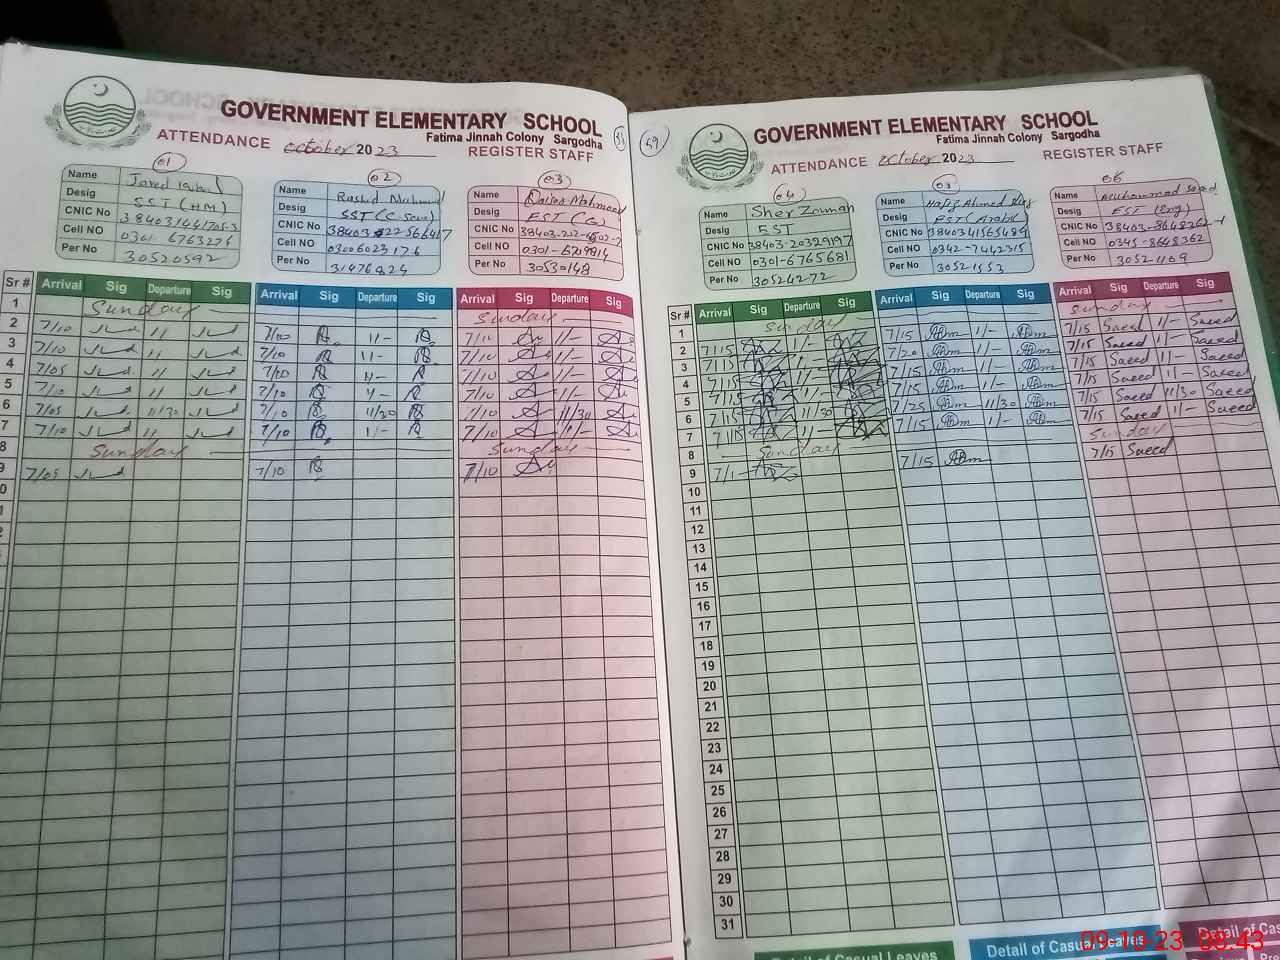 GOVERNMENT ELEMENTARY SCHOOL
Fatima Jinnah Colony Sargodha
ATTENDANCE October 2023
REGISTER STAFF
01
Name Javed Iqbal
Desig SST (HM)
CNIC No
Cell NO 0301-6763276
Per No 30520592
02
Name Rashid Mahmud
Desig SST (C-Scie)
CNIC No
Cell NO 03006023176
Per No 31476424
03
Name Mahmood
Desig EST (G)
CNIC No
Cell NO 0301-6709814
Per No 30530148
Sr # Arrival Sig Departure Sig Arrival Sig Departure Sig Arrival Sig Departure Sig
1 Sunday Sunday
2 7/10 11 7/10 11- 7/10 11-
3 7/10 11 7/10 11- 7/10 11-
4 7/05 11 7/10 11- 7/10 11-
5 7/10 11 7/10 11- 7/10 11-
6 7/05 11/30 7/10 11/30 7/10 11/30
7 7/10 11 7/10 11- 7/10 11-
8 Sunday Sunday
9 7/05 7/10 7/10
49
GOVERNMENT ELEMENTARY SCHOOL
Fatima Jinnah Colony Sargodha
ATTENDANCE October 2023
REGISTER STAFF
04
Name Sher Zaman
Desig EST
CNIC No 38403-20329197
Cell NO 0301-6765681
Per No 30524272
05
Name Hafiz Ahmed
Desig EST (Arabic)
CNIC No 3840341565489
Cell NO 0342-7442315
Per No 30521553
06
Name Muhammad Saeed
Desig EST (Eng)
CNIC No
Cell NO 0345-8648362
Per No 30521109
Sr # Arrival Sig Departure Sig Arrival Sig Departure Sig Arrival Sig Departure Sig
1 Sunday Sunday
2 7/15 11- 7/15 11- 7/15 Saeed 11- Saeed
3 7/15 11- 7/20 11- 7/15 Saeed 11- Saeed
4 7/15 11- 7/15 11- 7/15 Saeed 11- Saeed
5 7/15 11- 7/15 11- 7/15 Saeed 11- Saeed
6 7/15 11/30 7/25 11/30 7/15 Saeed 11/30 Saeed
7 7/15 11- 7/15 11- 7/15 Saeed 11- Saeed
8 Sunday Sunday
9 7/15 7/15 Saeed
10
11
12
13
14
15
16
17
18
19
20
21
22
23
24
25
26
27
28
29
30
31
Detail of Casual Leaves
Detail of Casual Leaves
Detail of Cas
09-10-23 08:43